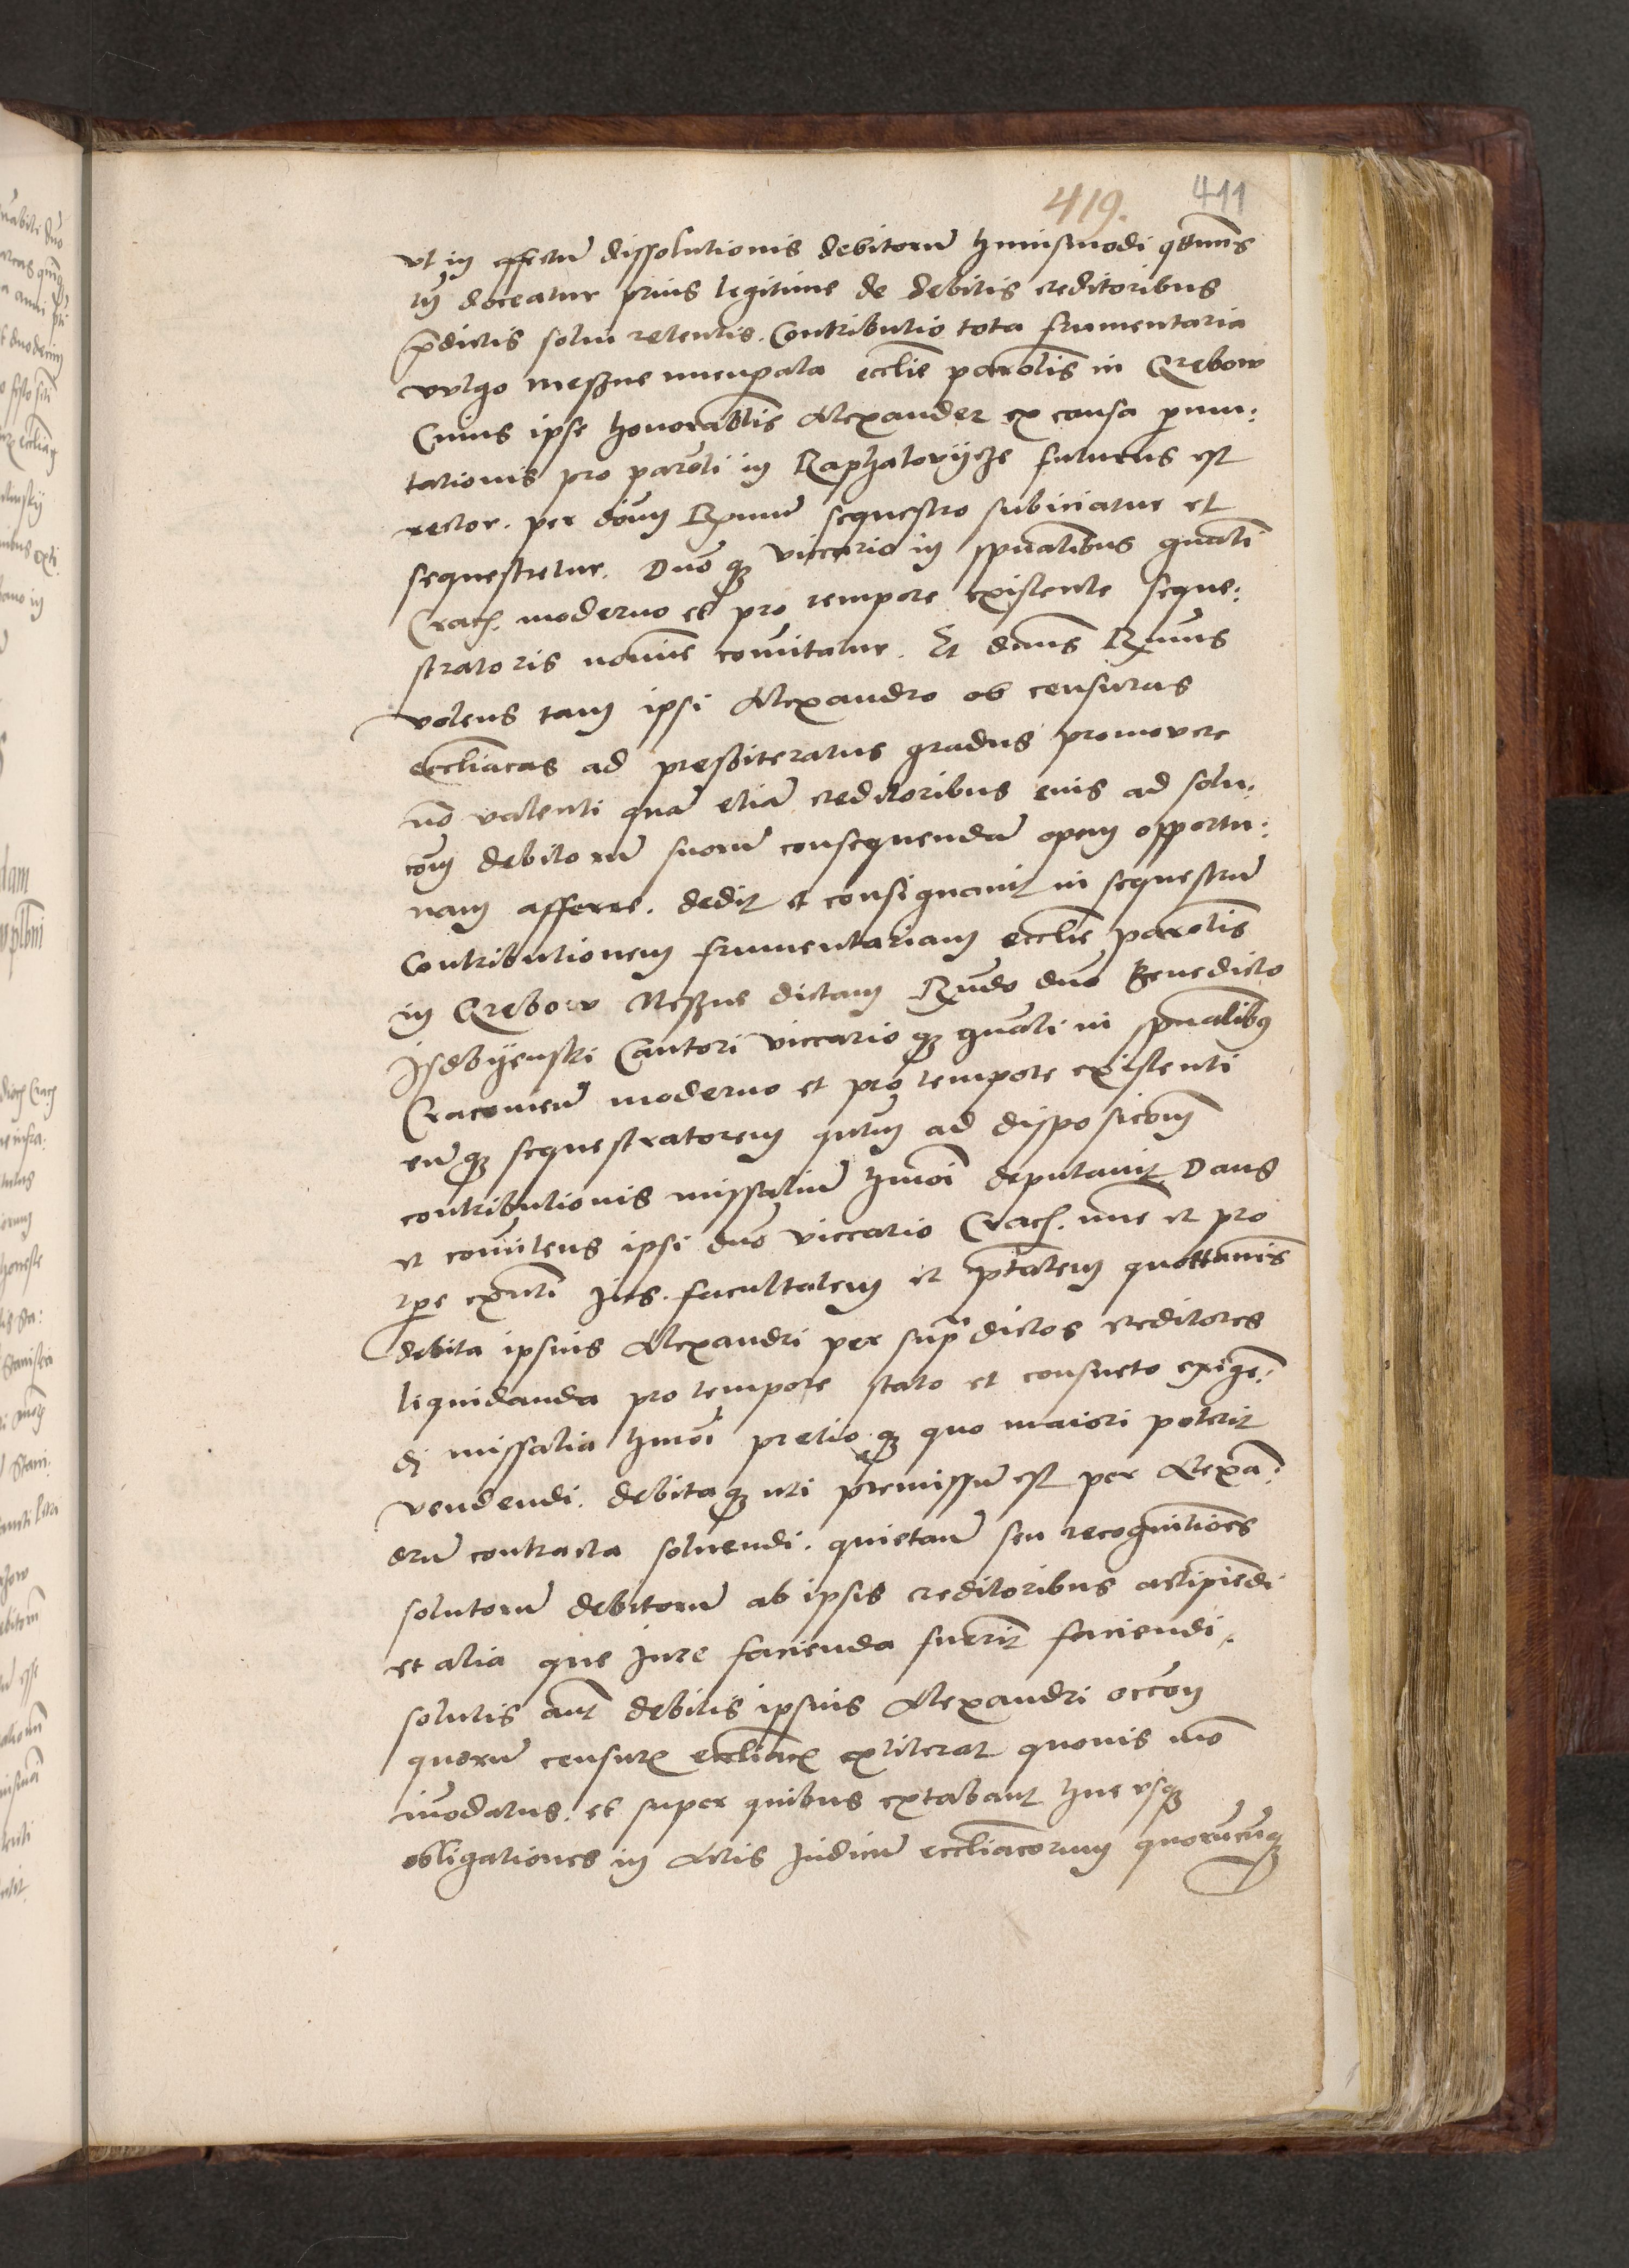 419. 411
vt in effectu dissolutionis debitoru huiusmodi
tn doceatur prius legitime de debitis creditoribus
p̄dictis solui retentis. Contributio tota frumentaria
vulgo meszne nuncupata ecclie parolis in Grebow
Cuius ipse honorablis Alexander ex causa pmu:
tationis pro paroli in Raphalovycze futurus est
rector. per dnum Rmum sequestro subiiciatur et
sequestretur. Dno q3 viccario in spualibus gnali
Crac. moderno et pro tempore existente seque:
stratoris nomine comittatur. Et dnus Rmus
volens tam ipsi Alexandro ob censuras
eccliacas ad presbiteratus gradus promovere
no valenti qua etia creditoribus eius ad solu:
com debitoru suoru consequenda opem opportu:
nam afferre. dedit et consignauit in sequestru
Contributionem frumentariam ecclie parolis
in Grebow Meszne dictam Rndo dno Benedicto
Isdbyenski Cantori viccario q3 gnali in spualibus
Cracouien moderno et pro tempore existenti
eu q3 sequestratorem qntum ad disposicom
contributionis missaliu hmoi deputauit Dans
et comittens ipsi dno viccario Crac. nunc et pro
tpe exnti Ius. facultatem et ptatem quottannis
debita ipsius Alexandri per supradictos creditores
liquidanda pro tempore stato et consueto exigen:
di missalia hmoi pretio q3 quo maiori poterit
vendendi. debitaq3 uti premissum est per Alexan:
dru contracta soluendi. quietam seu recognitiones
solutoru debitoru ab ipsis creditoribus accipiendi
et alia que Iure facienda fuerit faciendi.
solutis aut debitis ipsius Alexandri occom
quoru censure eccliace extiterat quouis mo
inodatus. et super quibus extabant huc vsq3
obligationes in Actis Iudicu eccliacorum quorucuq3